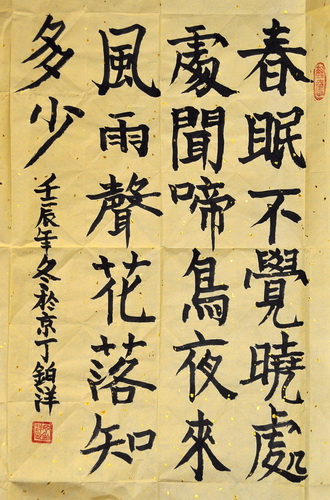 春眠不覺曉處
處聞啼鳥夜來
風雨聲花落知
多少
壬辰年冬於京丁鉑洋